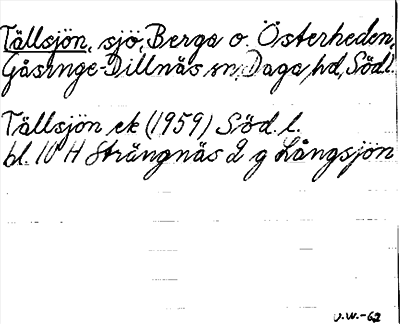 Tällsjön, sjö, Berga o. Österheden,
Gåsinge-Dillnäs sn, Daga hd, Södl.
Tällsjön ek (1959) Söd. l.
bl. 10 H Strängnäs 2 g Långsjön
V.W.-62